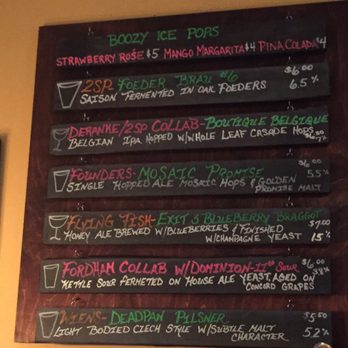 BOOZY ICE POPS
STRAWBERRY ROSE $5 MANGO MARGARITA $4 PINA COLADA $4
2SP FOEDER BRAU #6 $6.00
SAISON FERMENTED IN OAK FOEDERS 6.5%
DERANKE/2SP COLLAB-BOUTIQUE BELGIQUE
BELGIAN IPA HOPPED W/WHOLE LEAF CASADE HOPS
FOUNDERS-MOSAIC PROMISE $6.00
SINGLE HOPPED ALE MOSAIC HOPS & GOLDEN 5.5%
PROMISE MALT
FLYING FISH-EXIT 3 BLUEBERRY BRAGGOT
HONEY ALE BREWED W/BLUEBERRIES & FINISHED $7.00
W/CHAMPAGNE YEAST 15%
FORDHAM COLLAB W/DOMINION- SOUR $6.00
KETTLE SOUR FERMETED ON HOUSE ALE YEAST, AGED ON
CONCORD GRAPES
WIENS-DEADPAN PILSNER $5.50
LIGHT BODIED CZECH STYLE W/SUBTLE MALT 5.2%
CHARACTER